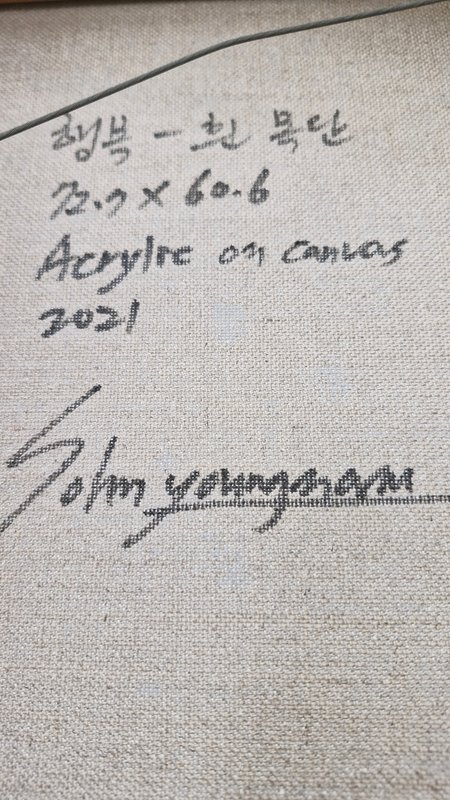 행복 - 흰 목단
72.7 x 60.6
Acrylic on canvas
2021
Sohn